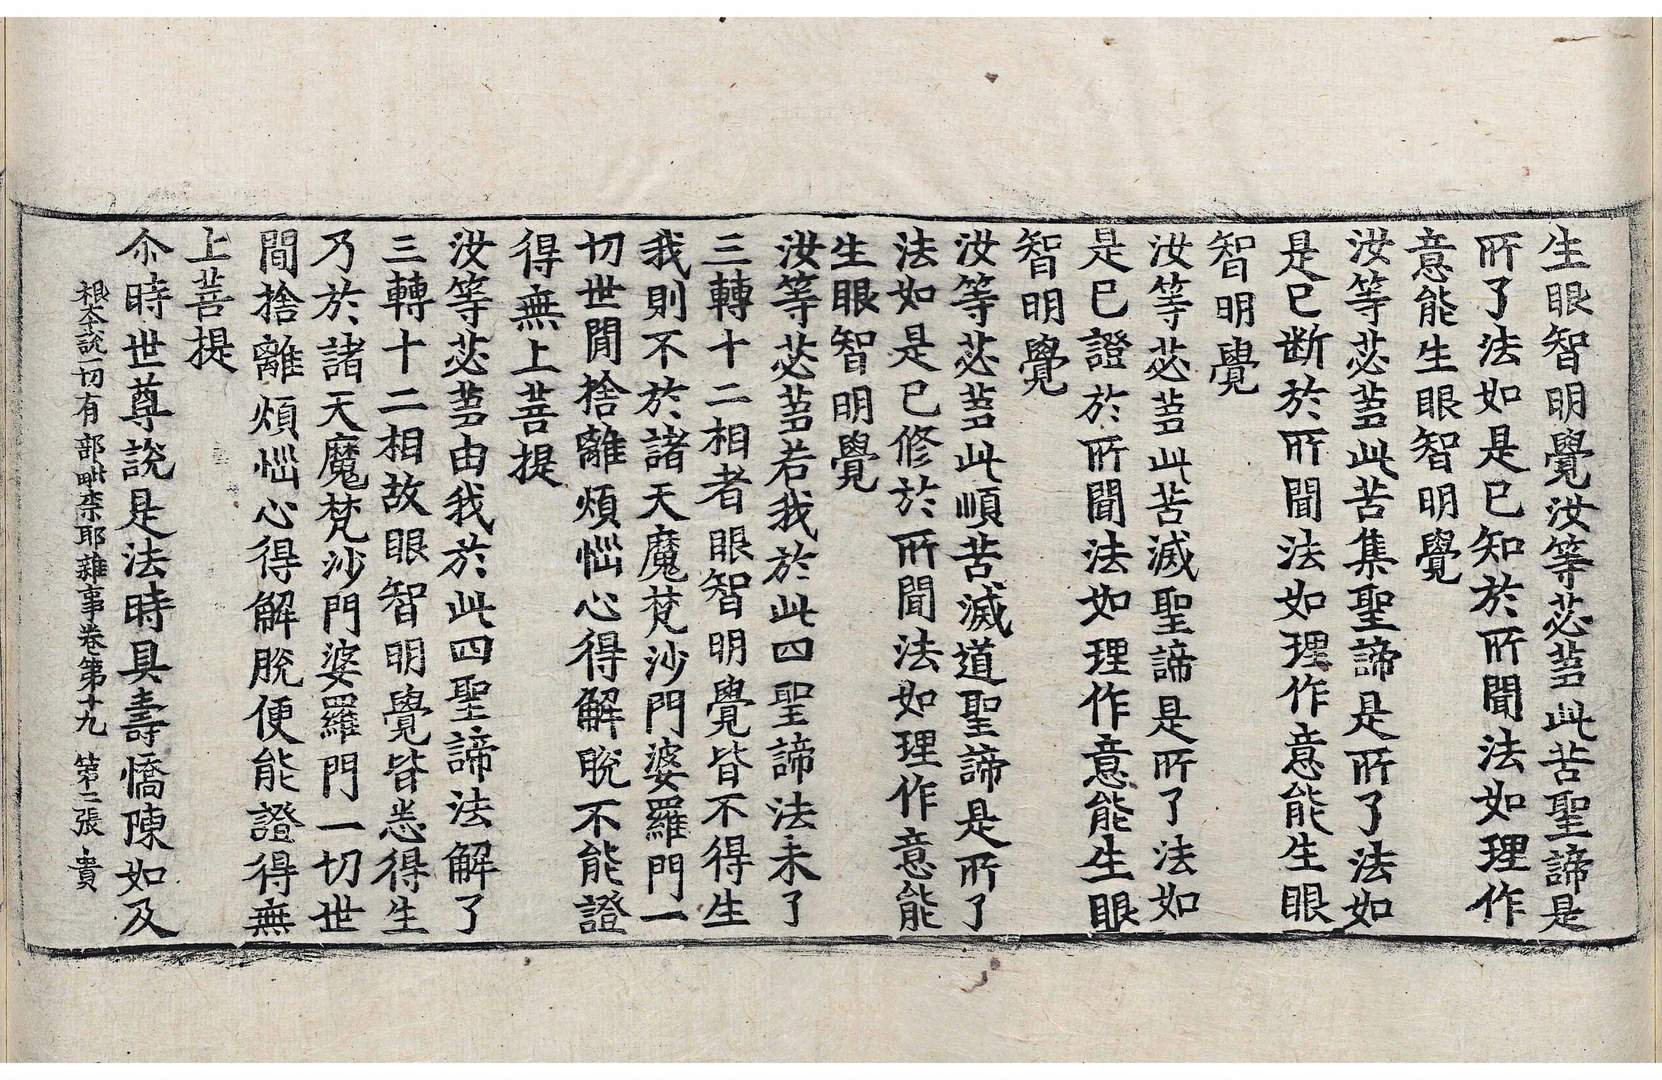 生眼智明覺汝等苾芻此苦聖諦是
所了法如是已知於所聞法如理作
意能生眼智明覺
汝等苾芻此苦集聖諦是所了法如
是已斷於所聞法如理作意能生眼
智明覺
汝等苾芻此苦滅聖諦是所了法如
是已證於所聞法如理作意能生眼
智明覺
汝等苾芻此順苦滅道聖諦是所了
法如是已修於所聞法如理作意能
生眼智明覺
汝等苾芻若我於此四聖諦法未了
三轉十二相者眼智明覺皆不得生
我則不於諸天魔梵沙門婆羅門一
切世間捨離煩惱心得解脫不能證
得無上菩提
汝等苾芻由我於此四聖諦法解了
三轉十二相故眼智明覺皆悉得生
乃於諸天魔梵沙門婆羅門一切世
間捨離煩惱心得解脫便能證得無
上菩提
尒時世尊說是法時具壽憍陳如及
根本說一切有部毗柰耶雜事卷第十九 第二張 貴